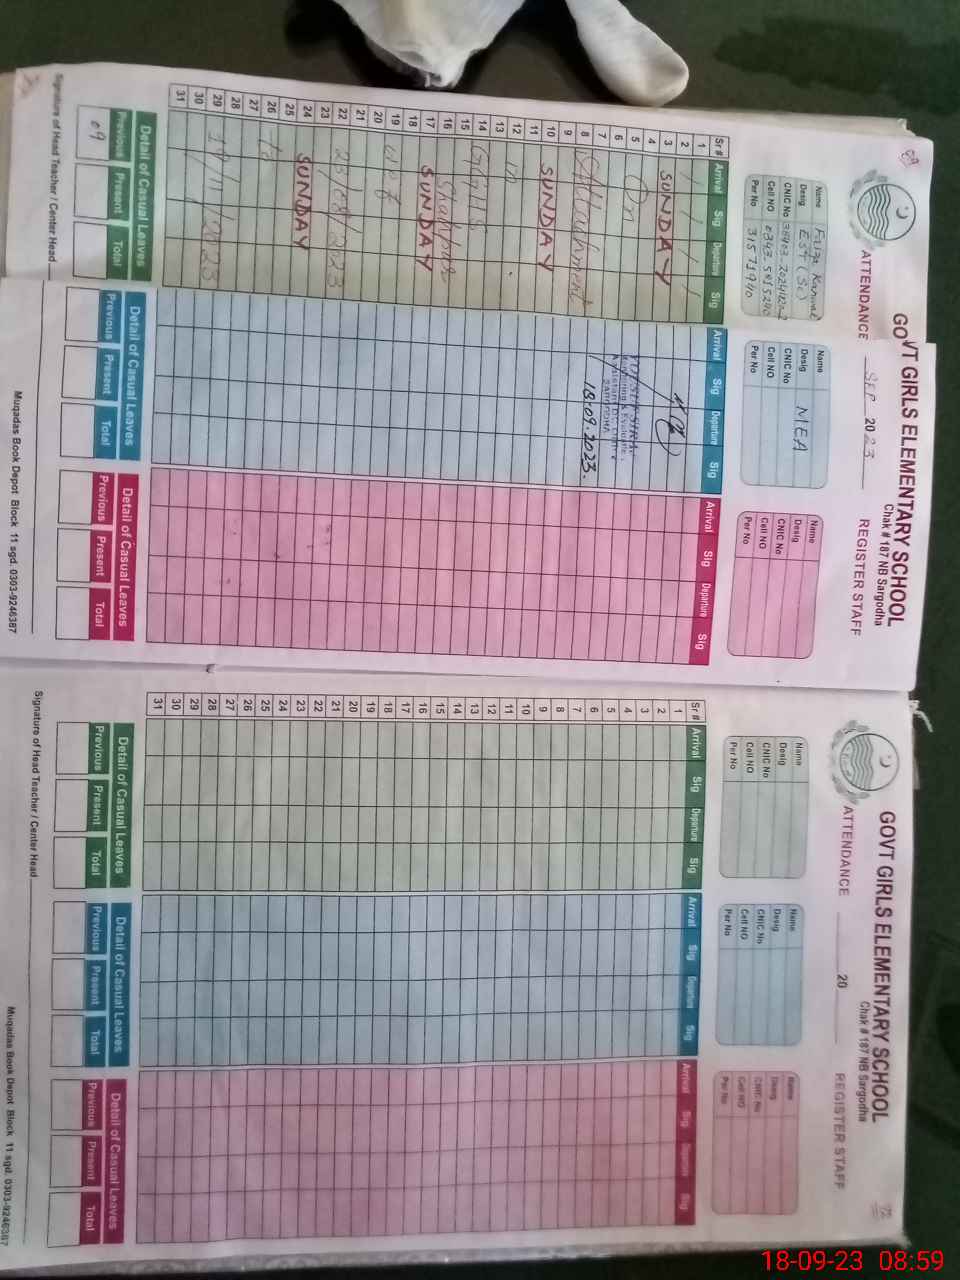 GOVT GIRLS ELEMENTARY SCHOOL
Chak # 187 NB Sargodha
ATTENDANCE SEP 2023 REGISTER STAFF
Name
Desig EST (Sc)
CNIC No
Cell NO
Per No 31571940
Name
Desig MEA
CNIC No
Cell NO
Per No
Name
Desig
CNIC No
Cell NO
Per No
Sr # Arrival Sig Departure Sig Arrival Sig Departure Sig Arrival Sig Departure Sig
1
2
3 SUNDAY
4
5 On
6
7
8 Attachment 18.09.2023.
9
10 SUNDAY
11
12 in
13
14 GGHS
15
16 Shahpur
17 SUNDAY
18
19 w.e.f
20
21
22
23
24 SUNDAY
25
26 to
27
28
29
30
31
Detail of Casual Leaves
Previous Present Total
09
Detail of Casual Leaves
Previous Present Total
Detail of Casual Leaves
Previous Present Total
Signature of Head Teacher / Center Head
Muqadas Book Depot Block 11 sgd. 0303-9246387
GOVT GIRLS ELEMENTARY SCHOOL
Chak # 187 NB Sargodha
ATTENDANCE 20 REGISTER STAFF
Name
Desig
CNIC No
Cell NO
Per No
Name
Desig
CNIC No
Cell NO
Per No
Name
Desig
CNIC No
Cell NO
Per No
Sr # Arrival Sig Departure Sig Arrival Sig Departure Sig Arrival Sig Departure Sig
1
2
3
4
5
6
7
8
9
10
11
12
13
14
15
16
17
18
19
20
21
22
23
24
25
26
27
28
29
30
31
Detail of Casual Leaves
Previous Present Total
Detail of Casual Leaves
Previous Present Total
Detail of Casual Leaves
Previous Present Total
Signature of Head Teacher / Center Head
Muqadas Book Depot Block 11 sgd. 0303-9246387
18-09-23 08:59